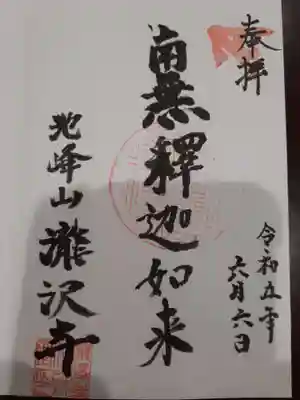 奉拝
令和五年
六月六日
南無釋迦如来
峰山 瀧沢寺